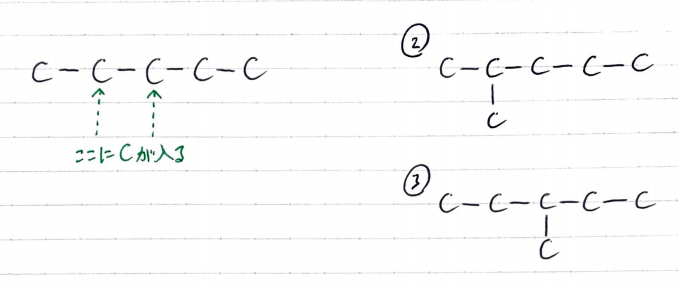 C-C-C-C-C
ここにCが入る
②
C-C-C-C-C
|
C
③
C-C-C-C-C
|
C